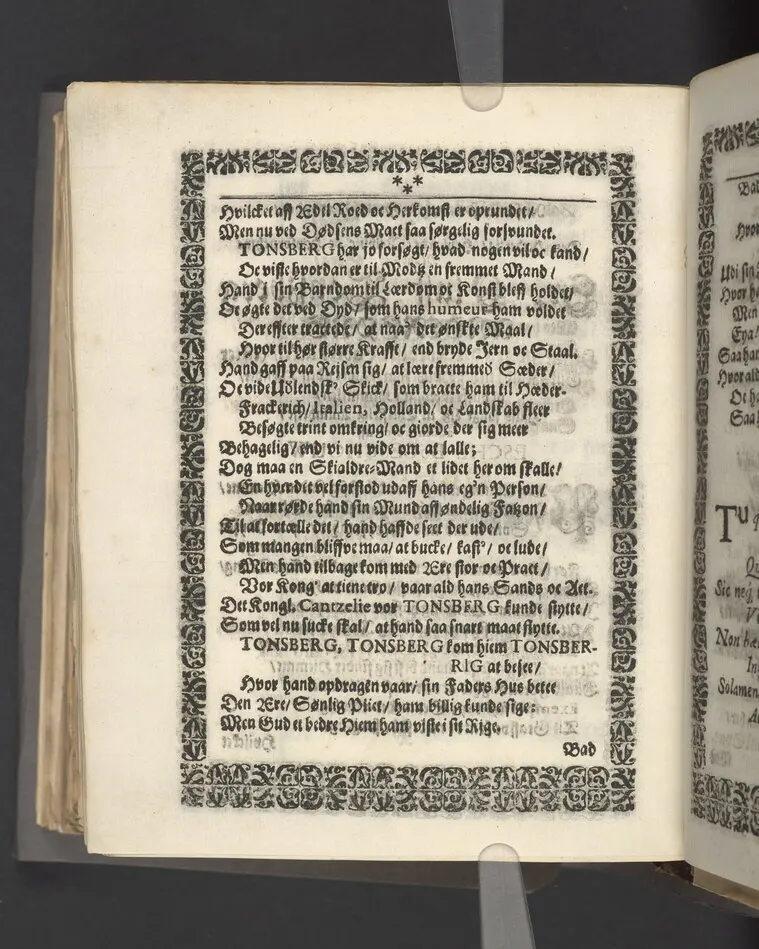 ***
Hvilcket aff Ædil Roed oc Herkomst er oprundet/
Men nu ved Dødsens Mact saa sørgelig forsvundet.
TONSBERG har jo forsøgt/ hvad nogen vil oc kand/
Oc viste hvordan er til Modtz en fremmet Mand/
Hand i sin Barndom til Lærdom oc Konst bleff holdet/
Oc øgte det ved Dyd/ som hans humeur ham voldet
Der effter tractede/ at naa det ønskte Maal/
Hvor til hør større Krafft/ end bryde Jern oc Staal.
Hand gaff paa Rejsen sig/ at lære fremmed Sæder/
Oc vide Udlendsk Skick/ som bracte ham til Hæder.
Franckerich/ Italien, Holland/ oc Landskab fleer
Besøgte trint omkring/ oc giorde der sig meer
Behagelig/ end vi nu vide om at lalle;
Dog maa en Skialdre-Mand et lidet her om skalle/
En hver det vel forstod udaff hans eg'n Person/
Naar rørde hand sin Mund aff øndelig Fatzon/
Til at fortælle det/ hand haffde seet der ude/
Som mangen bliffve maa/ at bucke/ kast'/ oc lude/
Men hand tilbage kom med Ære stor oc Pract/
Vor Kong' at tiene tro/ vaar ald hans Sands oc Act.
Det Kongl. Cantzelie vor TONSBERG kunde støtte/
Som vel nu sucke skal/ at hand saa snart maat flytte.
TONSBERG, TONSBERG kom hiem TONSBER-
RIG at besee/
Hvor hand opdragen vaar/ sin Faders Hus betee
Den Ære/ Sønlig Plict/ ham billig kunde sige;
Men Gud et bedre Hiem ham viste i sit Rige.
Bad